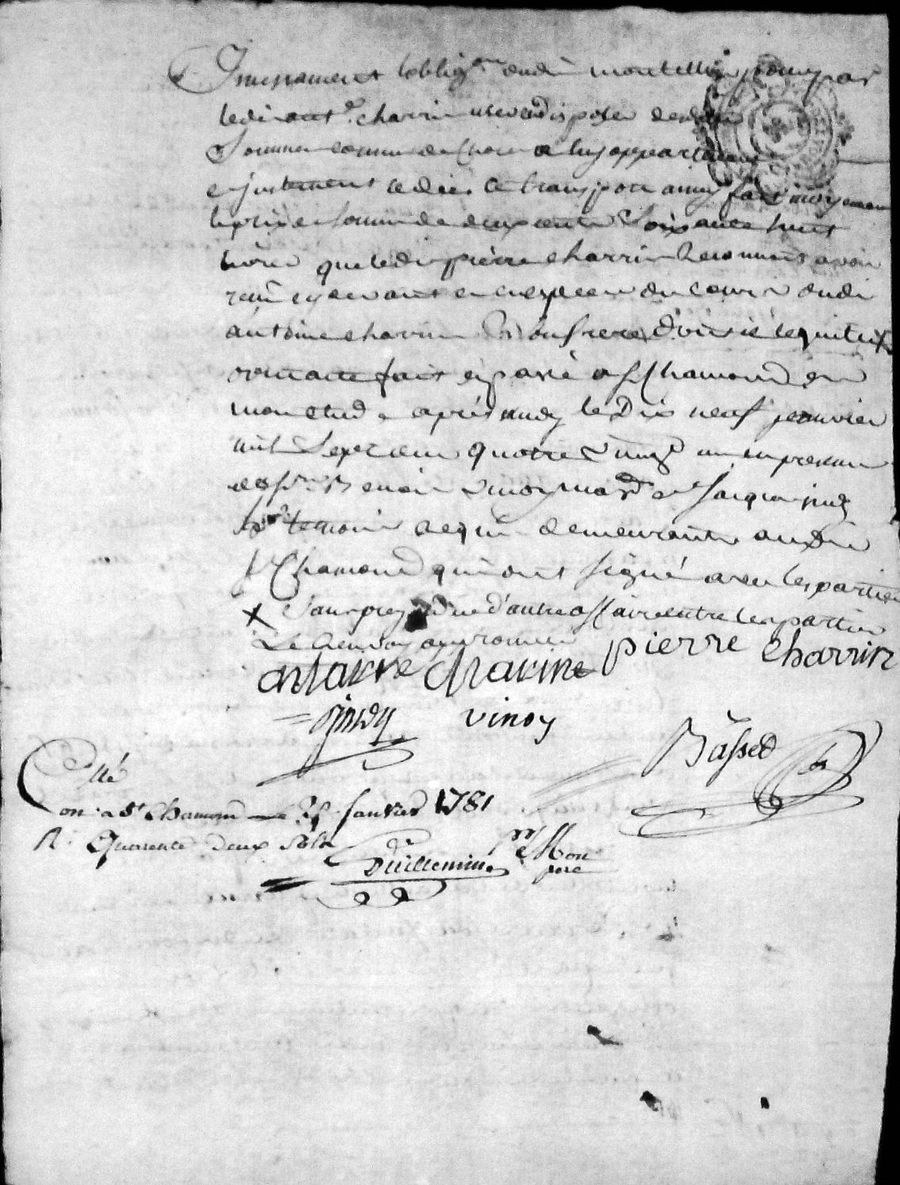 l'oblig.on dudi montellier pour par
ledi ant.e charrin user et disposer de
Somme comme de chose a luy appartenant
et justement le dit transport ainsy fait moyennant
le prix et somme de deux cents soixante huit
livres que ledi pierre charrin Reconnait avoir
reçu cy devant en espece du cours dudi
antoine charrin son frere dont il le quitte X
fait et passé a St Chamond en
mon etude apres midy le dix neuf janvier
mil sept cent quatre vingt un en presence
de Benoit Vinoy et Jacques
temoins requis demeurants audi
St Chamond qui ont signé avec les parties
X Sans prejudice d'autre affaire entre les parties
Le Renvoy approuvé
antoine charrin pierre charrin
vinoy
Bassed
Cllé
Con.e a St Chamond le janvier 1781
R. Quarente deux Sols
Duillemin